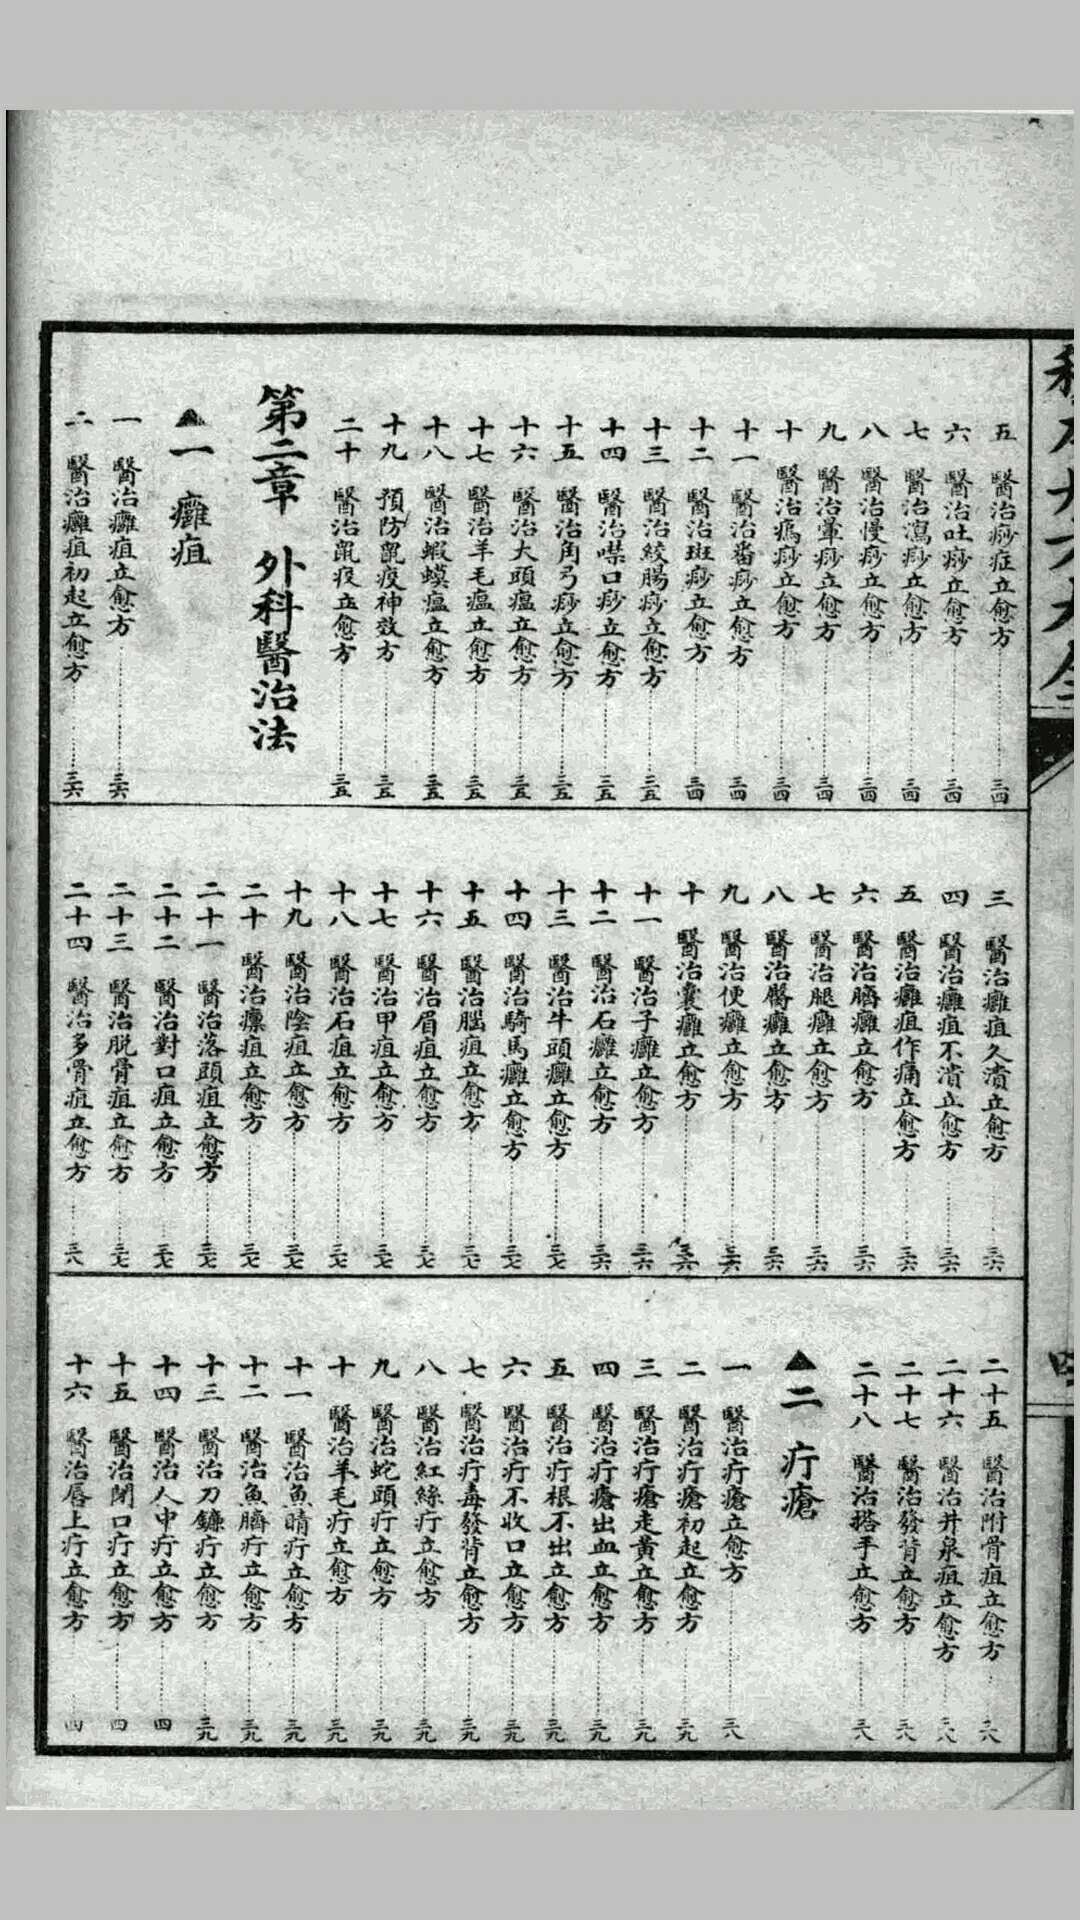 五 醫治痧症立愈方 三四
六 醫治吐痧立愈方 三四
七 醫治瀉痧立愈方 三四
八 醫治慢痧立愈方 三四
九 醫治暈痧立愈方 三四
十 醫治瘋痧立愈方 三四
十一 醫治番痧立愈方 三四
十二 醫治斑痧立愈方 三四
十三 醫治絞腸痧立愈方 三五
十四 醫治喋口痧立愈方 三五
十五 醫治角弓痧立愈方 三五
十六 醫治大頭瘟立愈方 三五
十七 醫治羊毛瘟立愈方 三五
十八 醫治蝦蟆瘟立愈方 三五
十九 預防鼠疫神效方 三五
二十 醫治鼠疫立愈方 三五
第二章 外科醫治法
▲一 癰疽
一 醫治癰疽立愈方 三六
二 醫治癰疽初起立愈方 三六
三 醫治癰疽久潰立愈方 三六
四 醫治癰疽不潰立愈方 三六
五 醫治癰疽作痛立愈方 三六
六 醫治臍癰立愈方 三六
七 醫治腿癰立愈方 三六
八 醫治臀癰立愈方 三六
九 醫治便癰立愈方 三六
十 醫治囊癰立愈方 三六
十一 醫治子癰立愈方 三六
十二 醫治石癰立愈方 三六
十三 醫治牛頭癰立愈方 三七
十四 醫治騎馬癰立愈方 三七
十五 醫治腦疽立愈方 三七
十六 醫治眉疽立愈方 三七
十七 醫治甲疽立愈方 三七
十八 醫治石疽立愈方 三七
十九 醫治陰疽立愈方 三七
二十 醫治瘭疽立愈方 三七
二十一 醫治落頭疽立愈方 三七
二十二 醫治對口疽立愈方 三七
二十三 醫治脫骨疽立愈方 三七
二十四 醫治多骨疽立愈方 三八
二十五 醫治附骨疽立愈方 三八
二十六 醫治井泉疽立愈方 三八
二十七 醫治發背立愈方 三八
二十八 醫治搭手立愈方 三八
▲二 疔瘡
一 醫治疔瘡立愈方 三八
二 醫治疔瘡初起立愈方 三九
三 醫治疔瘡走黃立愈方 三九
四 醫治疔瘡出血立愈方 三九
五 醫治疔根不出立愈方 三九
六 醫治疔不收口立愈方 三九
七 醫治疔毒發背立愈方 三九
八 醫治紅絲疔立愈方 三九
九 醫治蛇頭疔立愈方 三九
十 醫治羊毛疔立愈方 三九
十一 醫治魚睛疔立愈方 三九
十二 醫治魚臍疔立愈方 三九
十三 醫治刀鐮疔立愈方 三九
十四 醫治人中疔立愈方 四
十五 醫治閉口疔立愈方 四
十六 醫治唇上疔立愈方 四